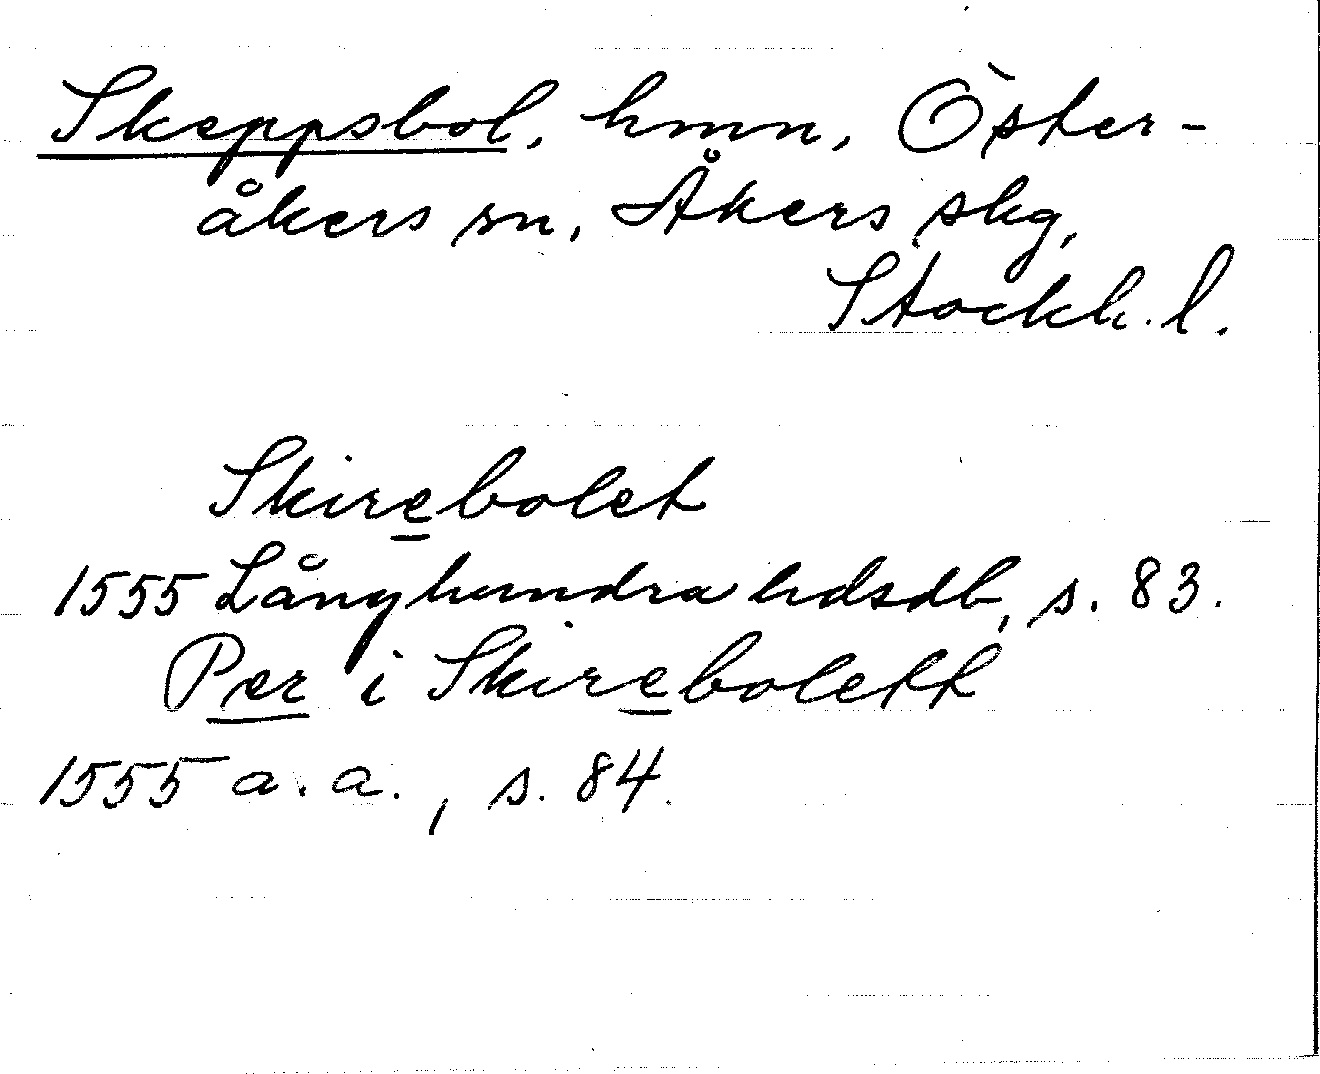 Skeppsbol, hmn, Öster-
åkers sn, Åkers skg,
Stockh. l.
Skirebolet
1555 Långhundra hdsdb, s. 83.
Per i Skirebolett
1555 a. a., s. 84.